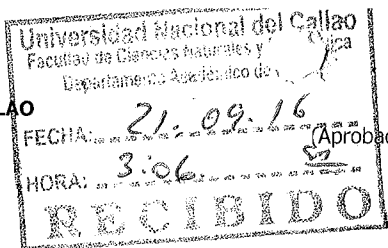 Universidad Nacional del Callao
Facultad de Ciencias Naturales y
Departamento Académico de
LAO
FECHA: 21.09.16
(Aprobad
HORA: 3:06.
RECIBIDO